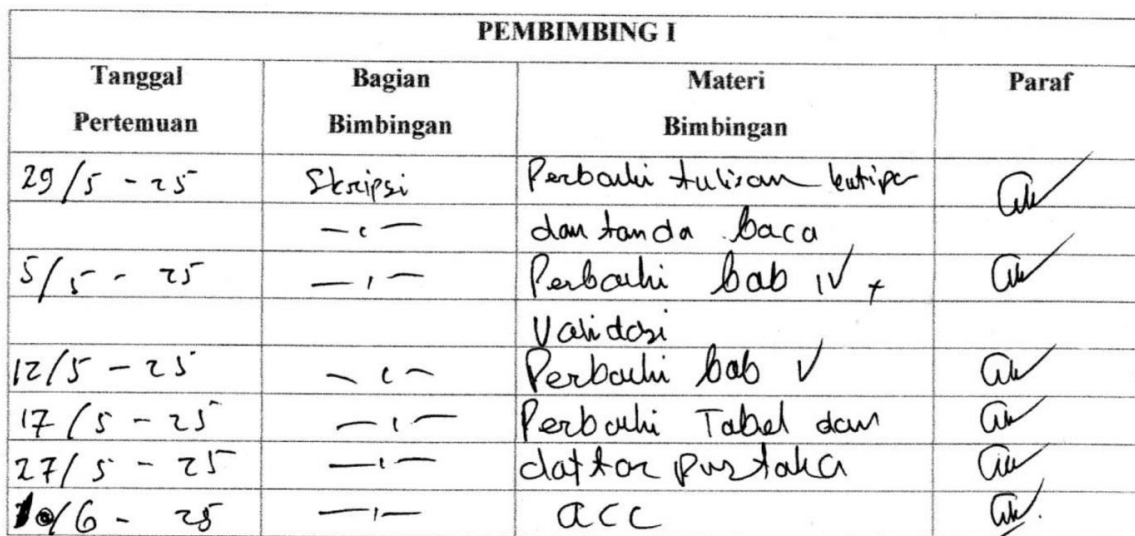 PEMBIMBING I
Tanggal Pertemuan Bagian Bimbingan Materi Bimbingan Paraf
29/5 - 25 Skripsi Perbaiki tulisan kutipan
— " — dan tanda baca
5/5 - 25 — " — Perbaiki bab IV +
Validasi
12/5 - 25 — " — Perbaiki bab V
17/5 - 25 — " — Perbaiki Tabel dan
27/5 - 25 — " — daftar pustaka
/6 - 25 — " — acc